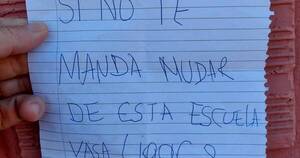 SI NO TE
MANDA MUDAR
DE ESTA ESCUELA
VASA